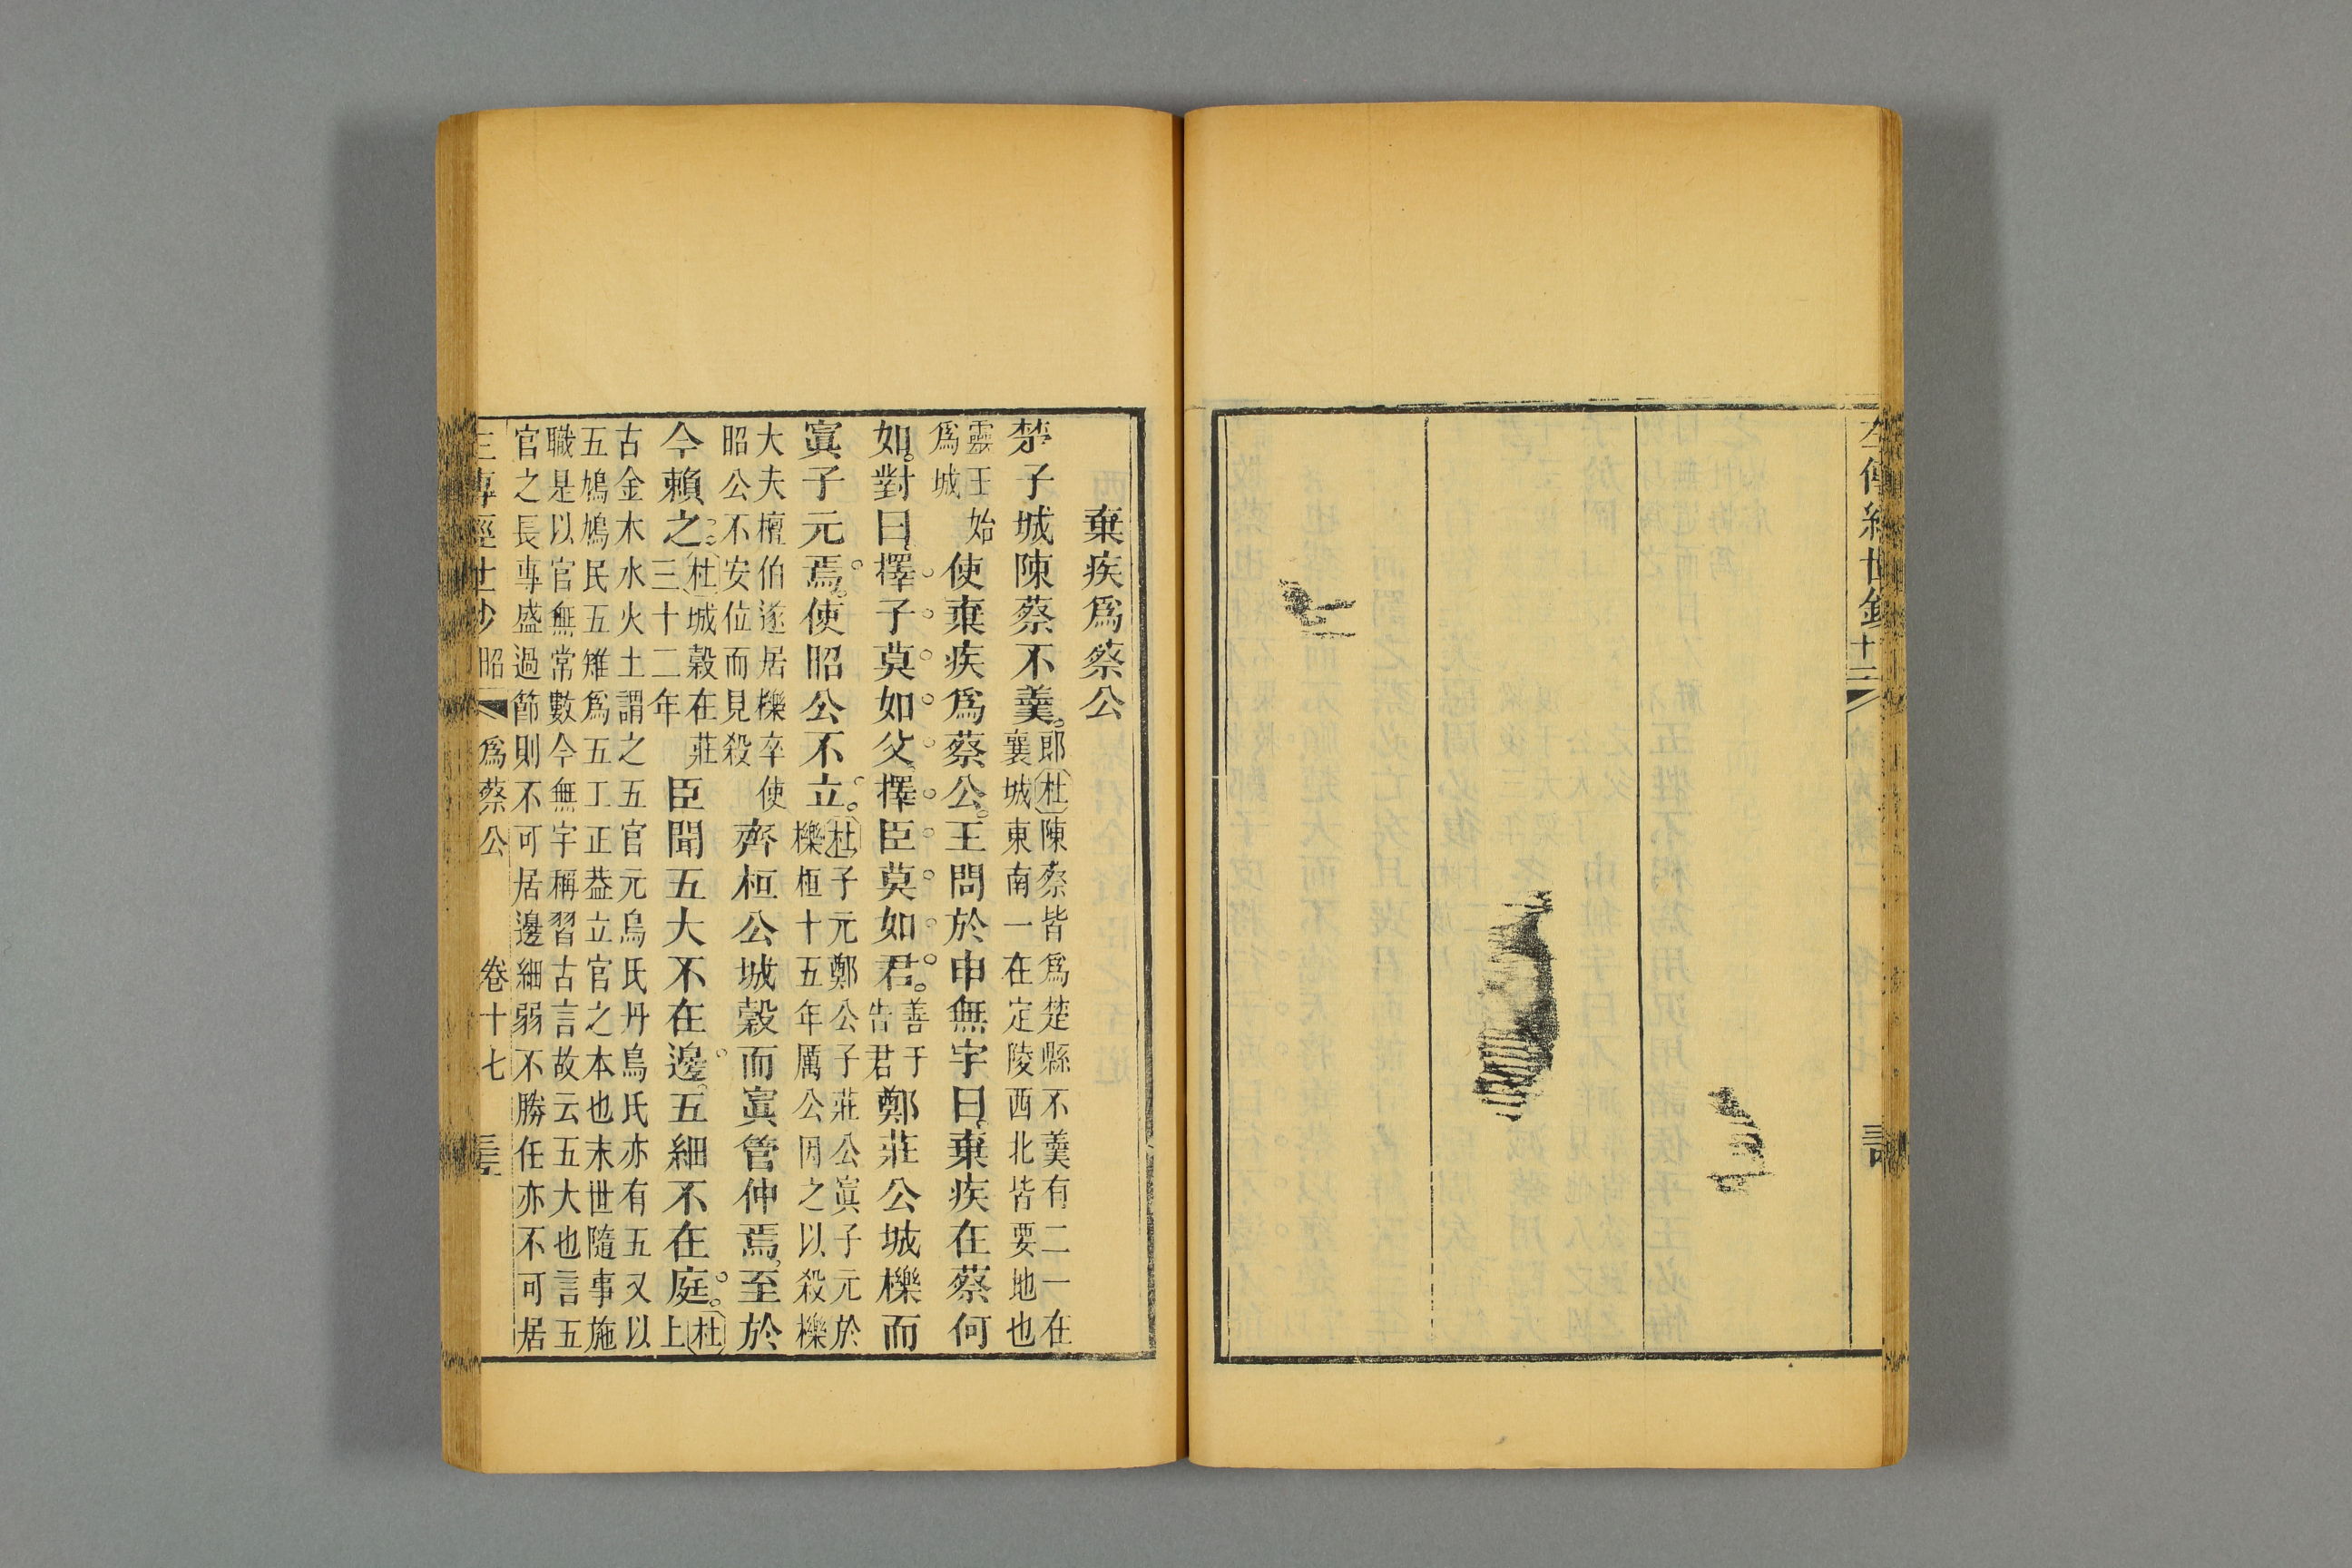 左傳經世鈔
棄疾爲蔡公
楚子城陳蔡不羹。郎杜陳蔡皆爲楚縣不羹有二一在
襄城東南一在定陵西北皆要地也
靈王始
爲城
使棄疾爲蔡公。王問於申無宇曰棄疾在蔡何
如。對曰擇子莫如父擇臣莫如君。善于
告君
鄭莊公城櫟而
寘子元焉。使昭公不立。杜子元鄭公子莊公寘子元於
櫟桓十五年厲公因之以殺櫟
大夫檀伯遂居櫟卒使
昭公不安位而見殺
齊桓公城穀而寘管仲焉至於
今賴之。杜城穀在莊
三十二年
臣聞五大不在邊。五細不在庭。杜上
古金木水火土謂之五官元鳥氏丹鳥氏亦有五又以
五鳩鳩民五雉爲五工正葢立官之本也末世隨事施
職是以官無常數今無宇稱習古言故云五大也言五
官之長專盛過節則不可居邊細弱不勝任亦不可居
昭 爲蔡公 卷十七